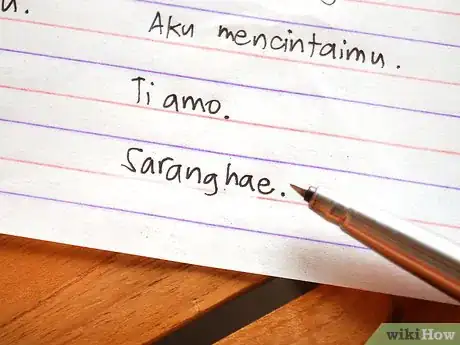 u.
Aku mencintaimu.
Ti amo.
Saranghae.
wikiHow